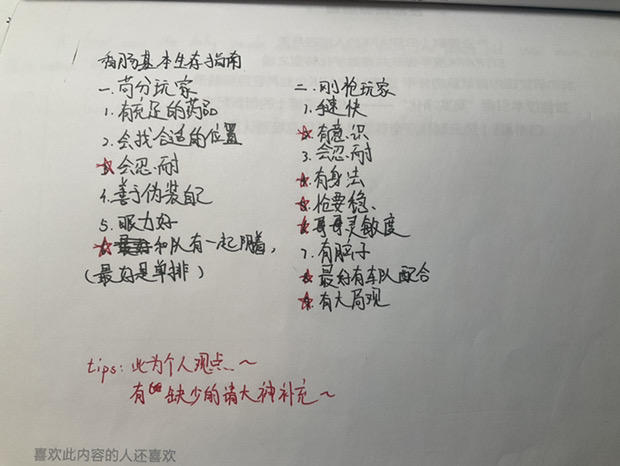 香肠基本生存指南
一.苟分玩家
1.有充足的药品
2.会找合适的位置
☆会忍耐
4.善于伪装自己
5.眼力好
☆和队有一起蹲,
(最好是单排)
二.刚枪玩家
1.手速快
☆.有意识
3.会忍耐
☆.有身法
☆.枪要稳、
☆.灵敏度
7.有脑子
☆.最好有车队配合
☆.有大局观
tips:此为个人观点~
有缺少的请大神补充~
喜欢此内容的人还喜欢